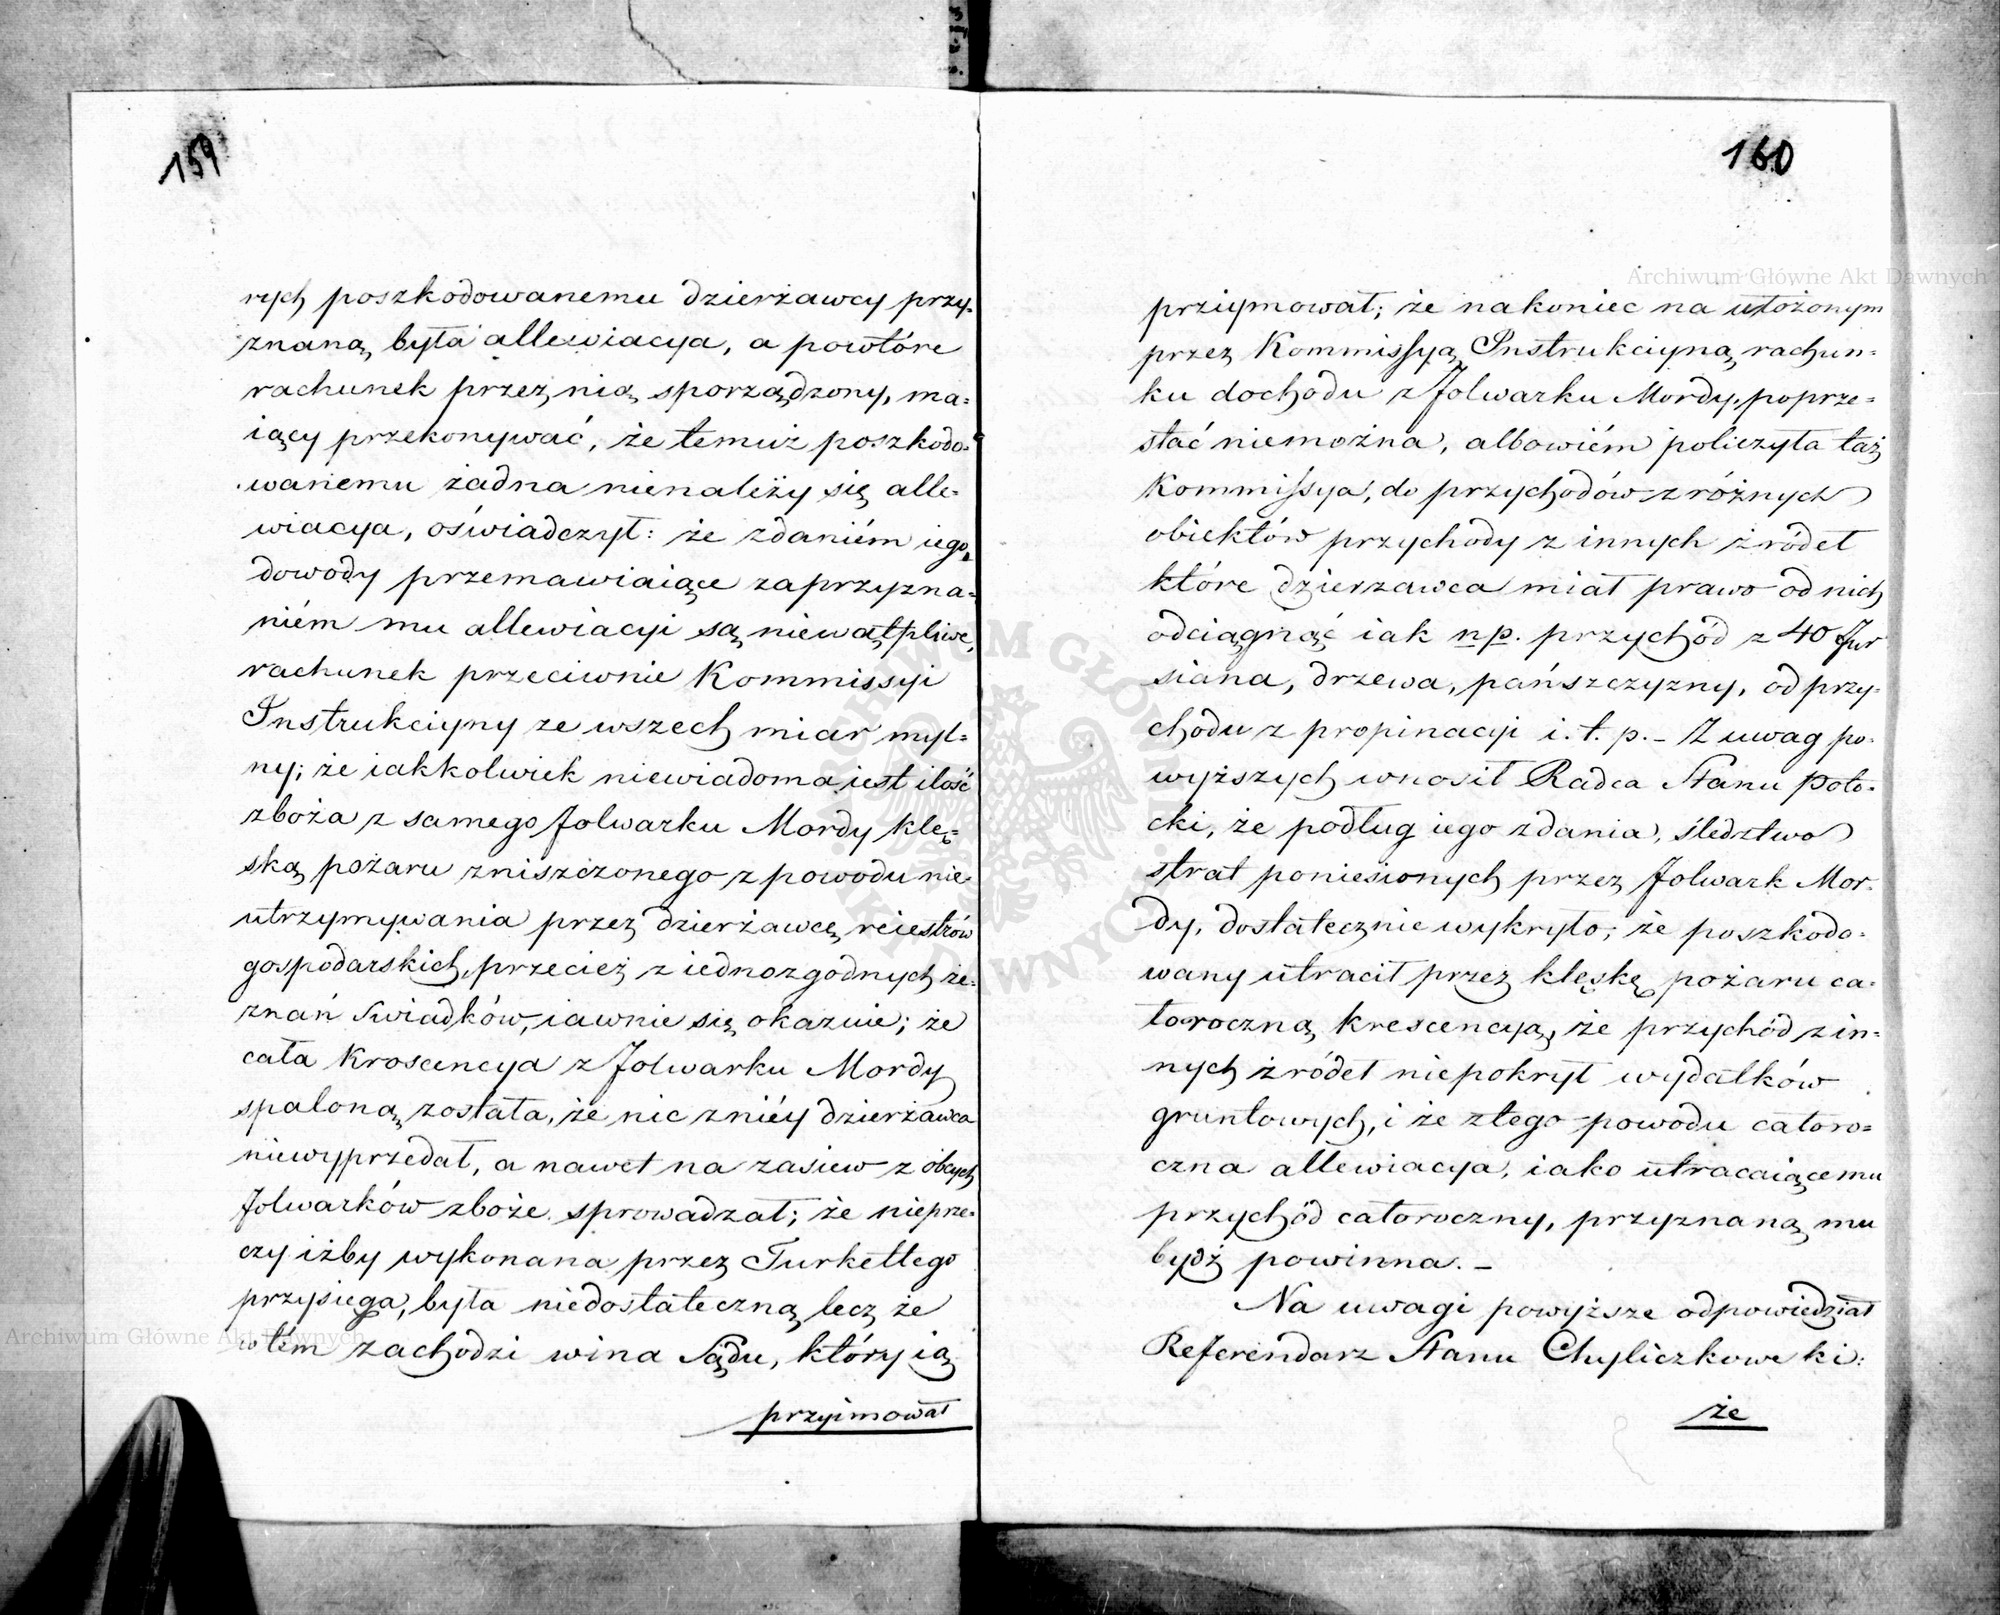 159
rych poszkodowanemu dzierżawcy przy-
znaną była allewiacya, a powtóre
rachunek przez nią sporządzony, ma-
iący przekonywać, że temuż poszkodo-
wanemu żadna nienależy się alle-
wiacya, oświadczył: że zdaniém iego,
dowody przemawiaiące za przyzna-
niém mu allewiacyi są niewątpliwe,
rachunek przeciwnie Kommissyi
Instrukcyiny ze wszech miar myl-
ny; że iakkolwiek niewiadoma iest ilość
zboża z samego folwarku Mordy klę-
ską pożaru zniszczonego z powodu nie
utrzymywania przez dzierżawcę reiestrów
gospodarskich, przecież z iednozgodnych ze-
znań Swiadków, iawnie się okazuie; że
cała Kroscencya z folwarku Mordy
spaloną została, że nic z niéy dzierżawca
niewyprzedał, a nawet na zasiew z obcych
folwarków zboże sprowadzał; że nieprze-
czy iżby wykonana przez Turkełłego
przysięga, była niedostateczną lecz że
w tém zachodzi wina Sądu, który ią
przyimował
160
przyimował; że nakoniec na ułożonym
przez Kommissyą Instrukcyiną rachun-
ku dochodu z folwarku Mordy, poprze-
stać niemożna, albowiém policzyła taż
Kommissya, do przychodów z różnych
obiektów przychody z innych źródeł
które dzierżawca miał prawo od nich
odciągnąć iak np. przychód z 40 fur
siana, drzewa, pańszczyzny, od przy-
chodu z propinacyi i. t. p. - Z uwag po-
wyższych wnosił Radca Stanu Poto-
cki, że podług iego zdania, śledztwo
strat poniesionych przez folwark Mor-
dy, dostatecznie wykryło; że poszkodo-
wany utracił przez klęskę pożaru ca-
łoroczną krescencyą, że przychód z in-
nych źródeł niepokrył wydatków
gruntowych, i że z tego powodu całoro-
czna allewiacya, iako utracaiącemu
przychód całoroczny, przyznaną mu
bydź powinna. -
Na uwagi powyższe odpowiedział
Referendarz Stanu Chyliczkowski:
że
Archiwum Główne Akt Dawnych
Archiwum Główne Akt Dawnych
ARCHIWUM GŁÓWNE AKT DAWNYCH